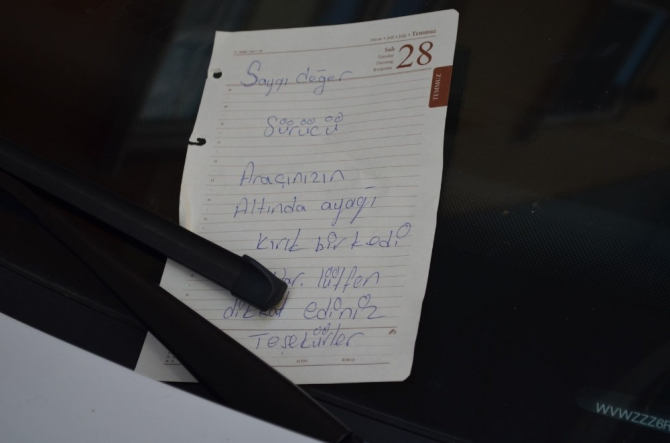 Temmuz
Salı
28
TEMMUZ
Saygı değer
Sürücü
Araçınızın
Altında ayağı
kırık bir kedi
var. lütfen
dikkat ediniz
Teşekürler